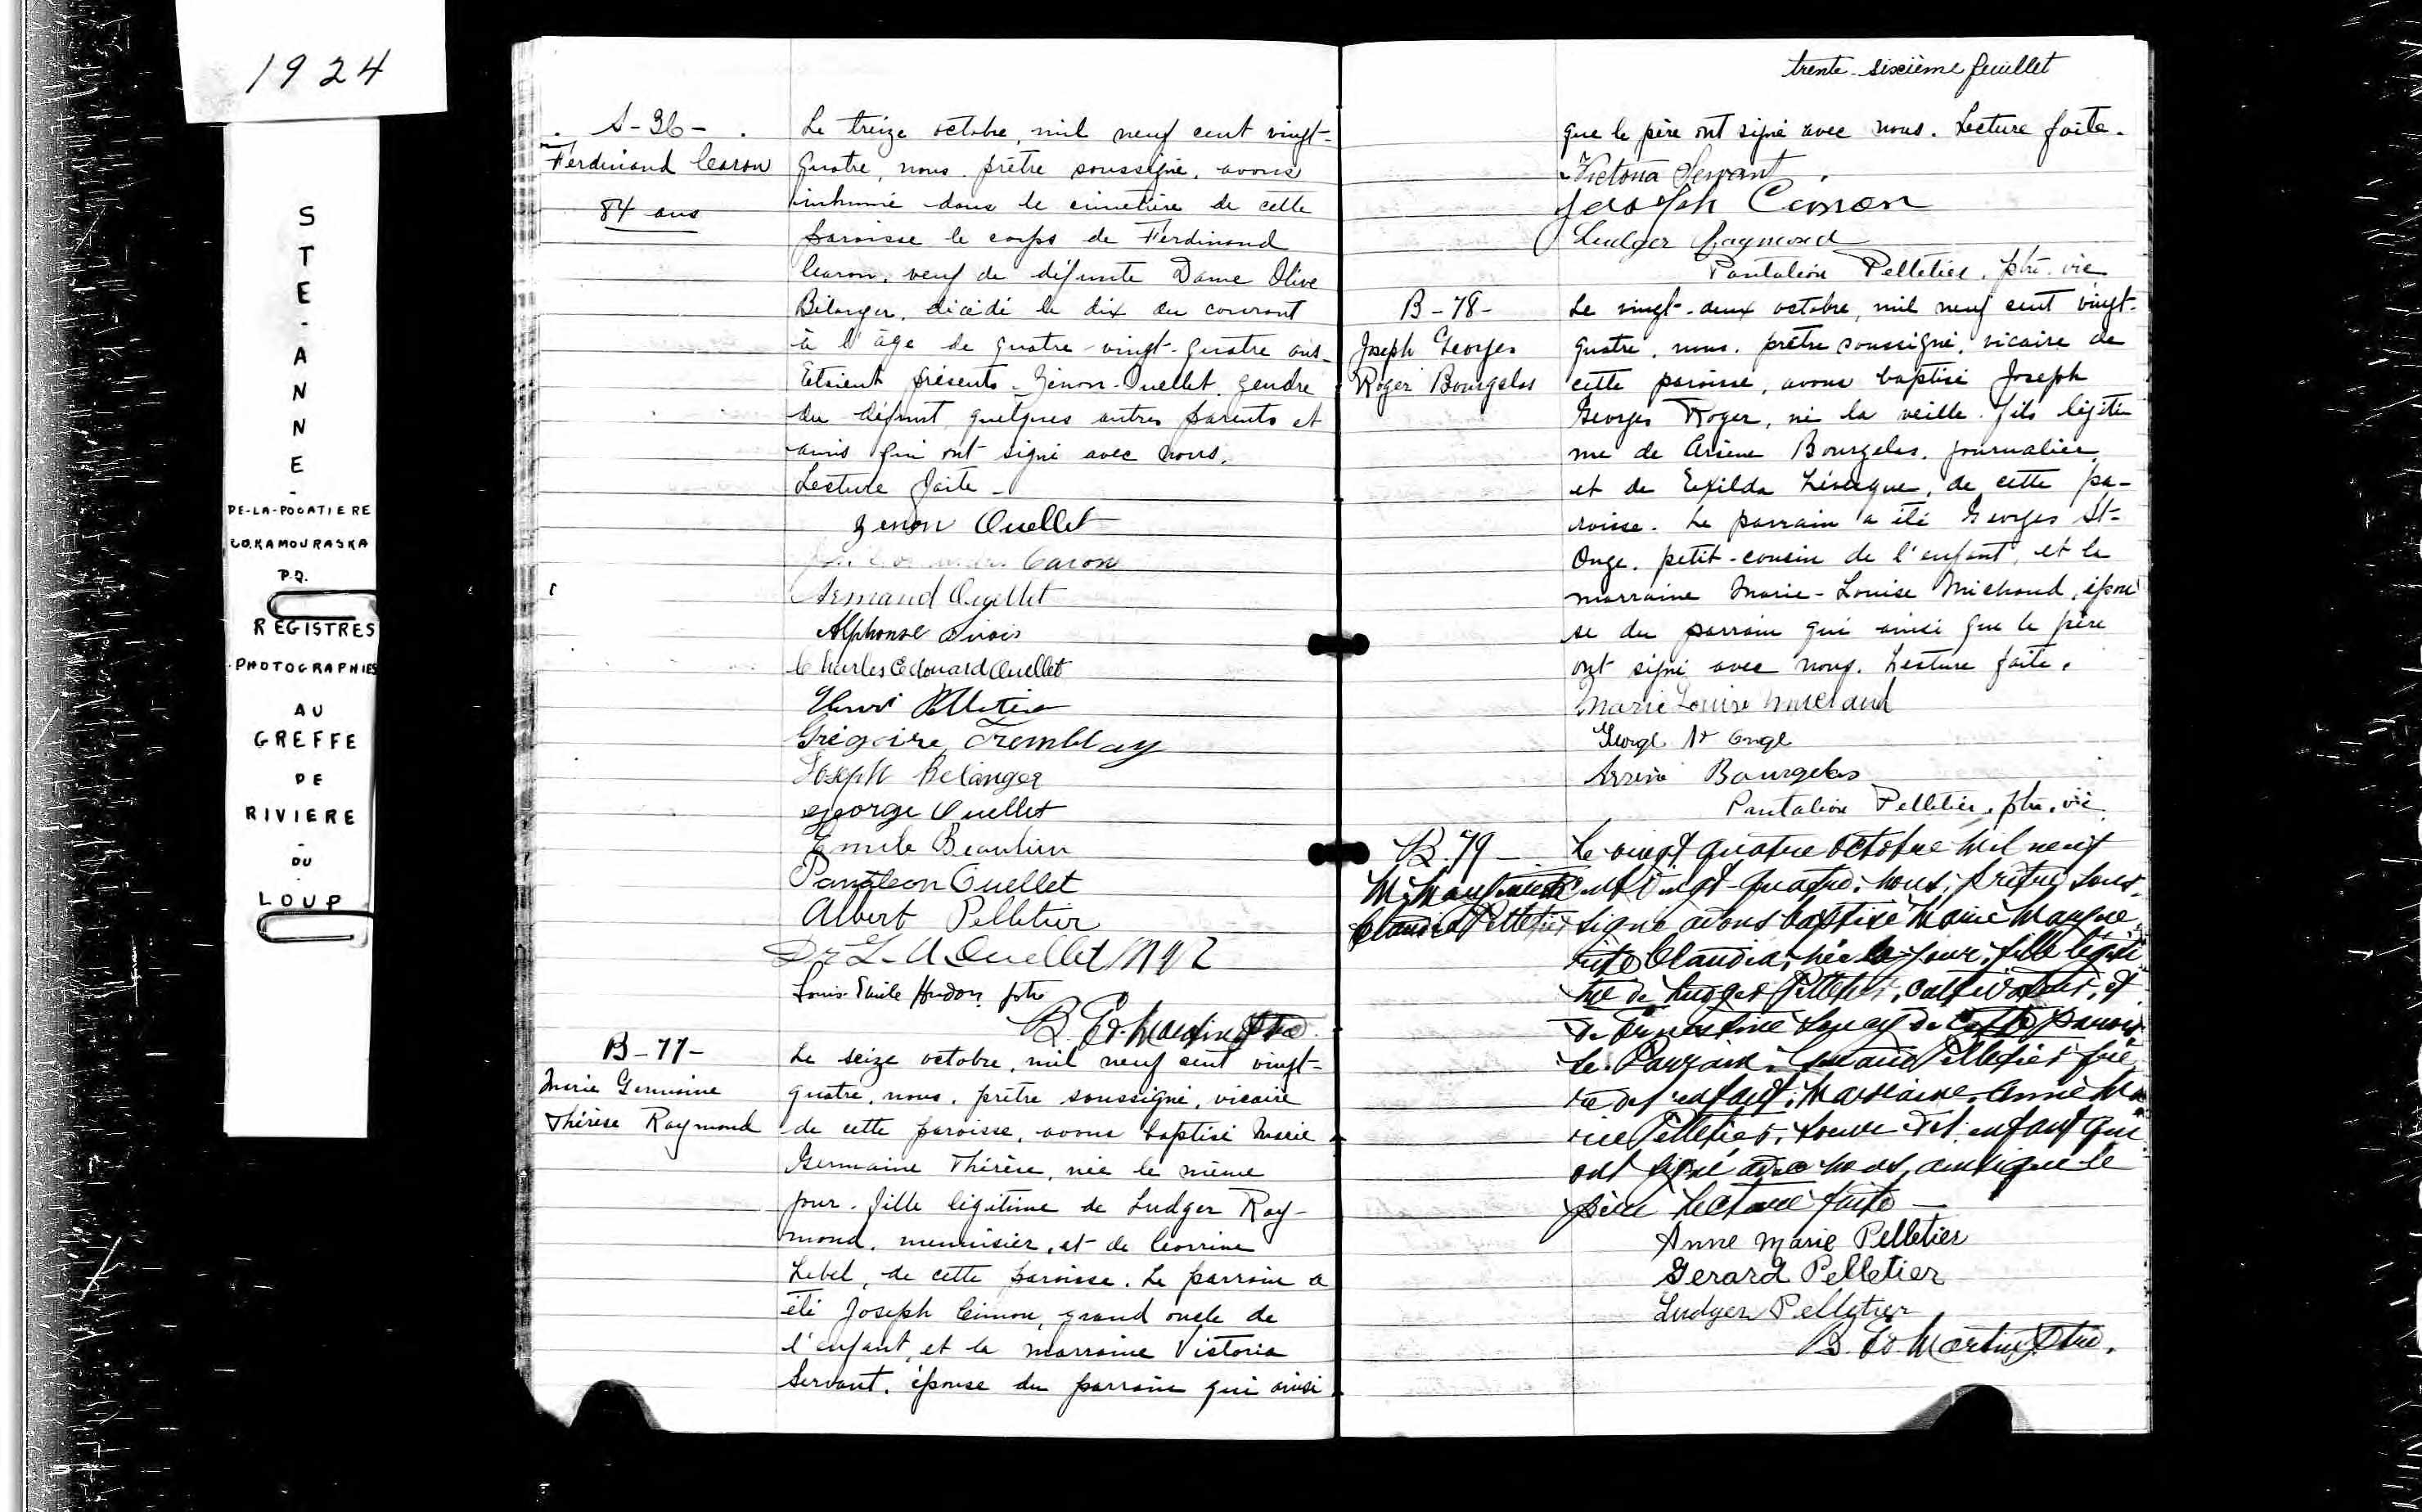 1924
STE-ANNE-
DE-LA-POCATIERE
CO. KAMOURASKA
P.Q.
REGISTRES
PHOTOGRAPHIES
AU
GREFFE
DE
RIVIERE
-
DU
-
LOUP
S-36-
Ferdinand Caron
84 ans
Le treize octobre, mil neuf cent vingt-
quatre, nous, prêtre soussigné, avons
inhumé dans le cimetière de cette
paroisse le corps de Ferdinand
Caron, veuf de défunte Dame Olive
Bélanger, décédé le dix du courant
à l'âge de quatre-vingt-quatre ans.
Etaient présents Zénon Ouellet, gendre
du défunt, quelques autres parents et
amis qui ont signé avec nous.
Lecture faite -
Zenon Ouellet
Caron
Armand Ouellet
Alphonse
Charles Edouard Ouellet
Henri Pelletier
Grégoire Tremblay
Joseph Belanger
George Ouellet
Emile Beaulieu
Pantaleon Ouellet
Albert Pelletier
Dr L. A. Ouellet
Louis-Emile Hudon ptre
B. Ed. Martin Ptre.
B-77-
Marie Germaine
Thérèse Raymond
Le seize octobre, mil neuf cent vingt-
quatre, nous, prêtre soussigné, vicaire
de cette paroisse, avons baptisé Marie
Germaine Thérèse, née le même
jour, fille légitime de Ludger Ray-
mond, menuisier, et de
Lebel, de cette paroisse. Le parrain a
été Joseph Cimon, grand oncle de
l'enfant, et la marraine Victoria
Servant, épouse du parrain qui ainsi
trente-sixième feuillet
que le père ont signé avec nous. Lecture faite.
Victoria Servant
Joseph Cimon
Ludger Raymond
Pantaléon Pelletier, ptre. vic
B-78-
Joseph Georges
Roger Bourgelas
Le vingt-deux octobre, mil neuf cent vingt-
quatre, nous, prêtre soussigné, vicaire de
cette paroisse, avons baptisé Joseph
Georges Roger, né la veille, fils légiti
me de Arsène Bourgelas, journalier,
et de Exilda Lévesque, de cette pa-
roisse. Le parrain a été Georges St-
Onge, petit-cousin de l'enfant, et la
marraine Marie-Louise Michaud, épou
se du parrain qui ainsi que le père
ont signé avec nous. Lecture faite.
Marie Louise Michaud
George St Onge
Arsène Bourgelas
Pantaléon Pelletier, ptre. vic.
B. 79 -
M. Marguerite
Claudia Pelletier
Le vingt quatre octobre mil neuf
cent vingt-quatre, nous, prêtre sous-
signé avons baptisé Marie Margue
rite Claudia, née le jour, fille légiti
me de Ludger Pelletier, cultivateur, et
de Ernestine de cette paroisse
Le Parrain, Gérard Pelletier frè
re de l'enfant; Marraine, Anne Ma
rie Pelletier, soeur de l'enfant qui
ont signé avec nous, ainsi que le
père Lecture faite -
Anne Marie Pelletier
Gerard Pelletier
Ludger Pelletier
B. Ed. Martin, Ptre.